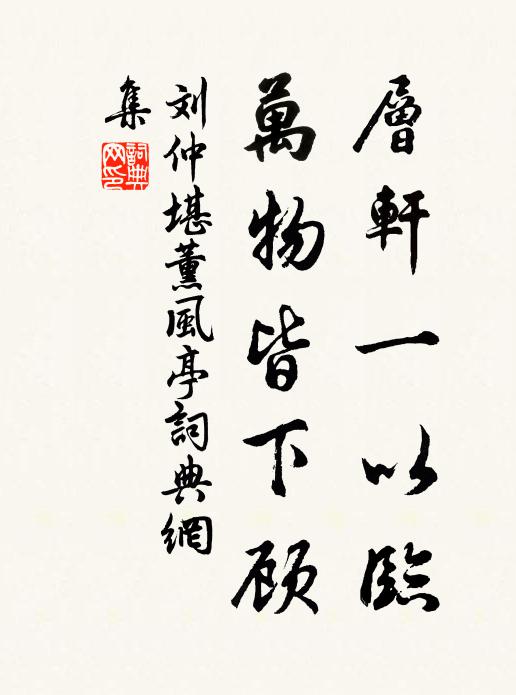 層軒一以臨
萬物皆下顾
刘仲堪薰風亭詞典網
集
詞典
网印